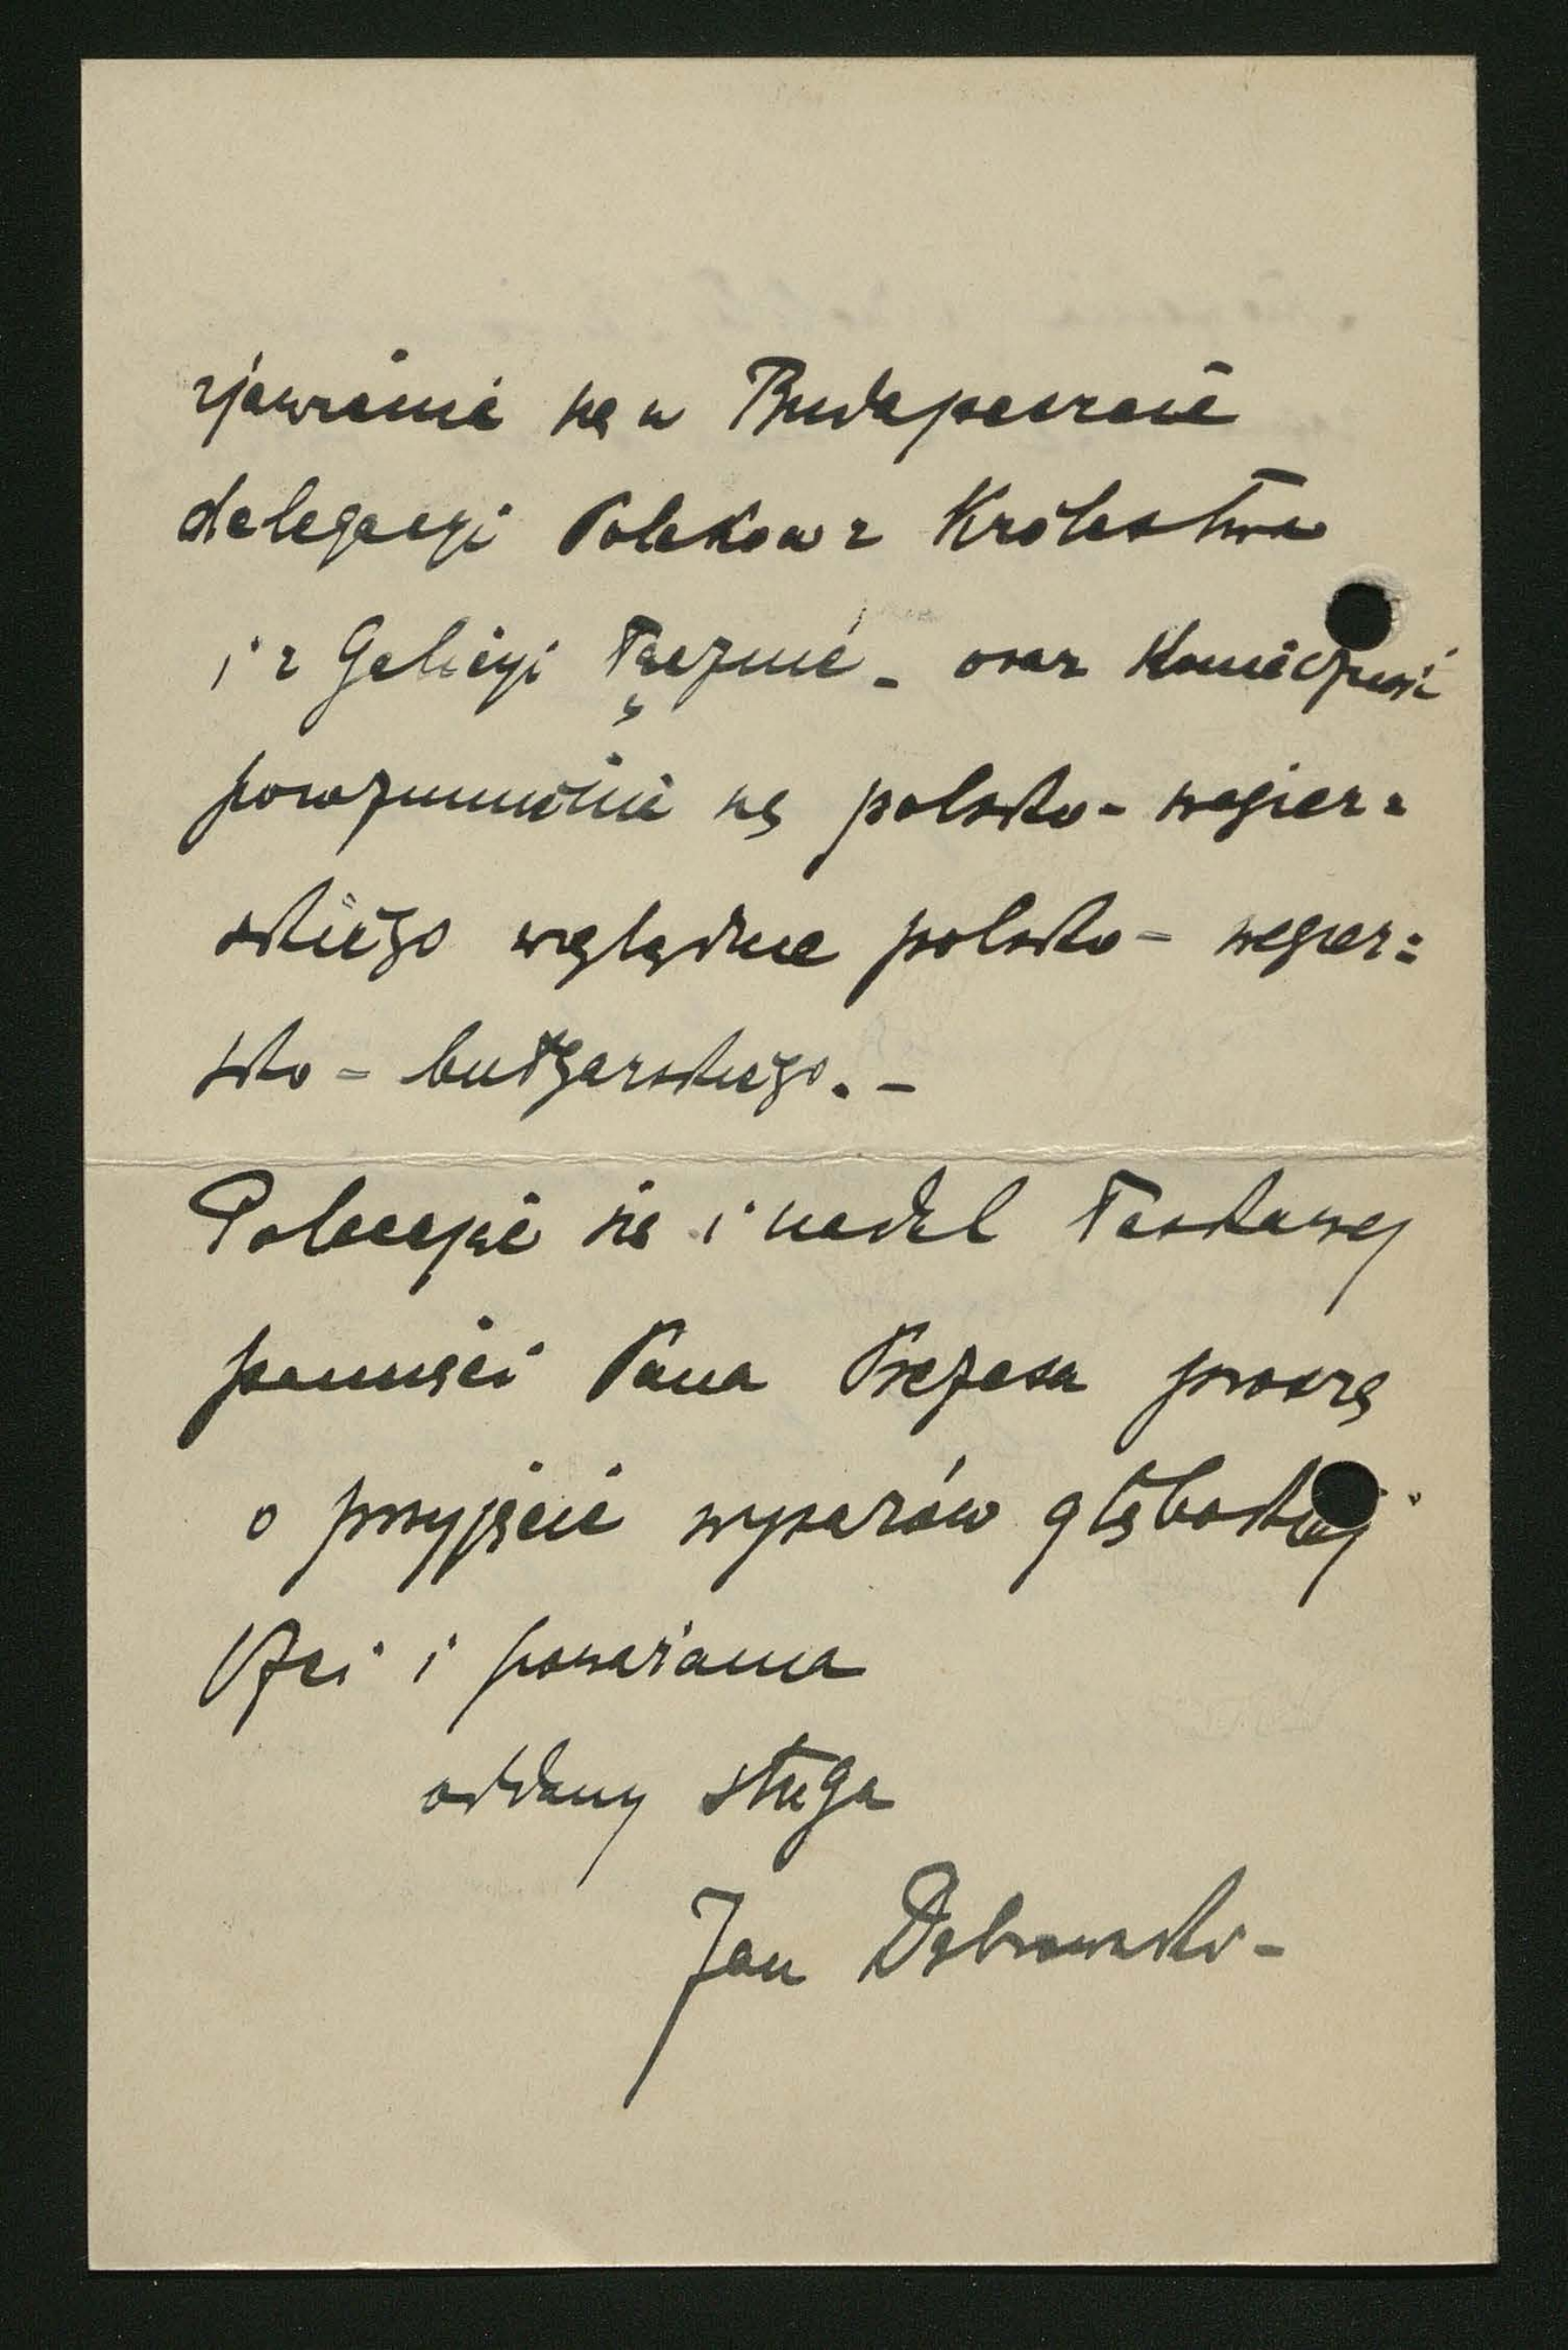 zjawienie się w Budapeszcie
delegacyi Polaków z Królestwa
i z Galicyi łącznie - oraz konieczność
porozumienia się polsko-węgier-
skiego względnie polsko-węgier-
sko-bułgarskiego. -
Polecając się i nadal łaskawej
pamięci Pana Prezesa proszę
o przyjęcie wyrazów głębokiej
czci i poważania
oddany sługa
Jan Dąbrowski -